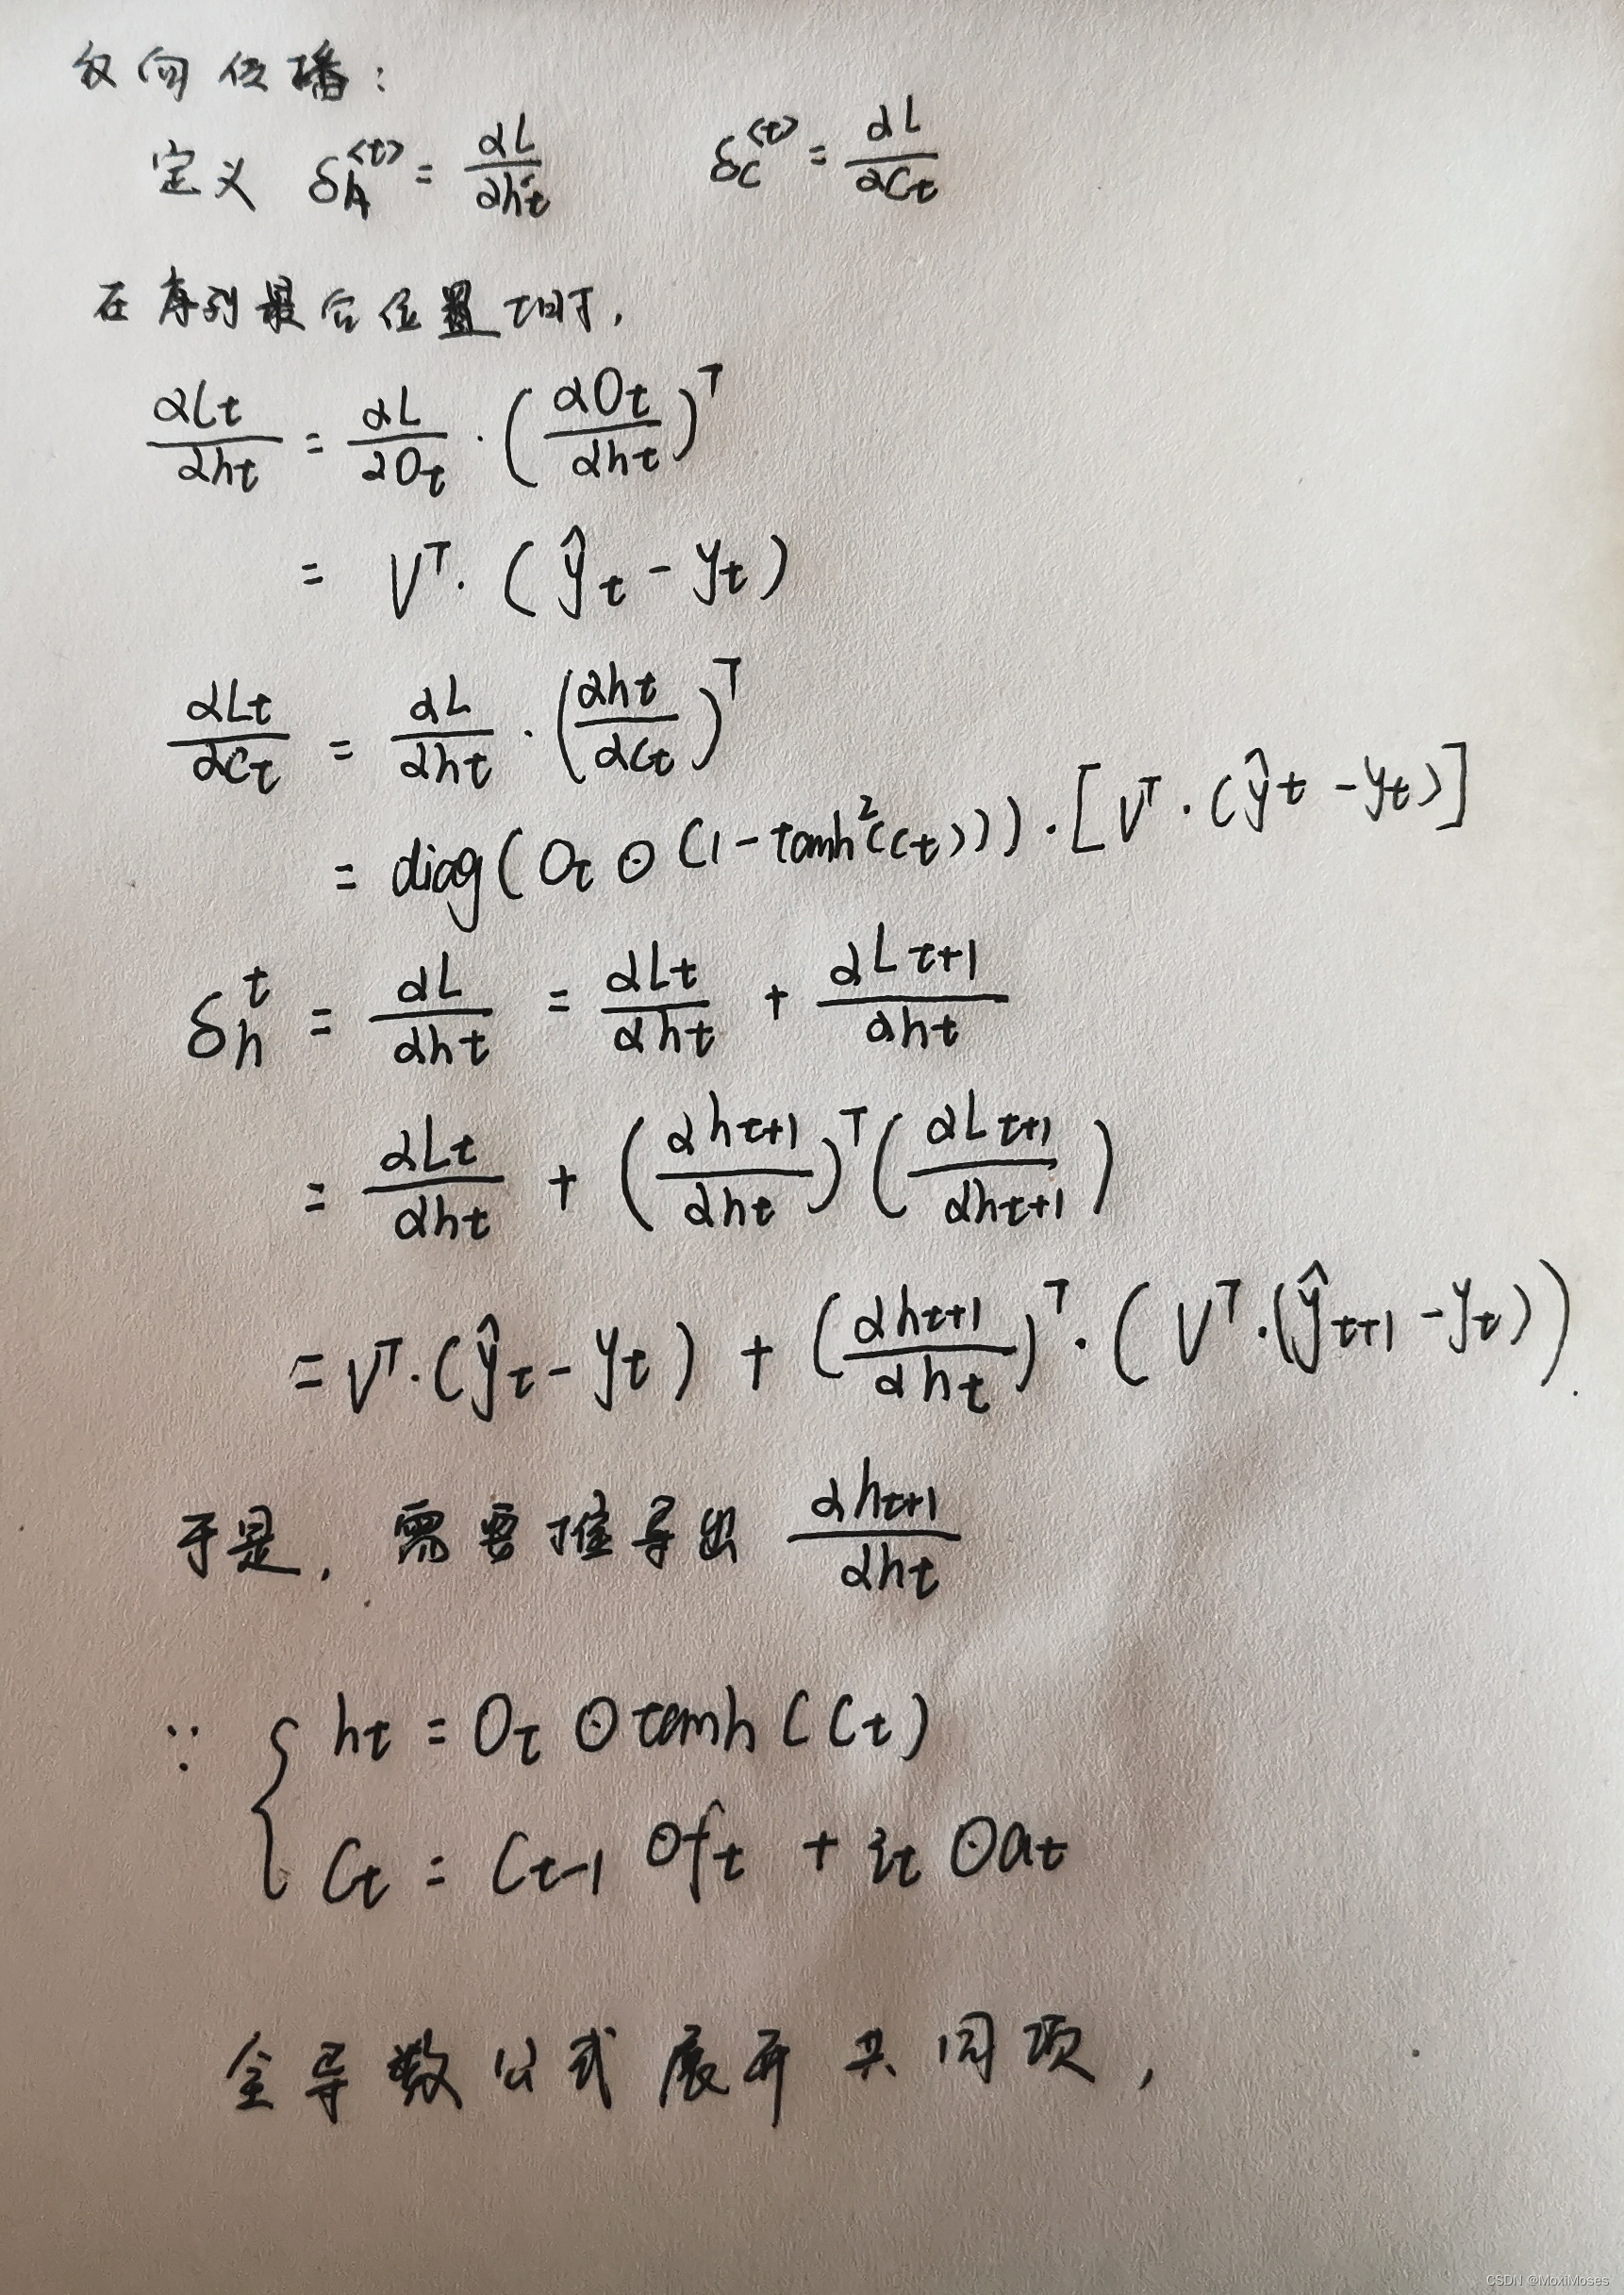 反向传播：
定义 δ_h^{<t>} = ∂L/∂h_t  δ_c^{<t>} = ∂L/∂C_t
在序列最后位置τ时，
∂L_t/∂h_t = ∂L/∂O_t · (∂O_t/∂h_t)^T
= V^T · (ŷ_t - y_t)
∂L_t/∂C_t = ∂L/∂h_t · (∂h_t/∂C_t)^T
= diag(O_t ⊙ (1 - tanh²(C_t))) · [V^T · (ŷ_t - y_t)]
δ_h^t = ∂L/∂h_t = ∂L_t/∂h_t + ∂L_{t+1}/∂h_t
= ∂L_t/∂h_t + (∂h_{t+1}/∂h_t)^T (∂L_{t+1}/∂h_{t+1})
= V^T · (ŷ_t - y_t) + (∂h_{t+1}/∂h_t)^T · (V^T · (ŷ_{t+1} - y_t)).
于是，需要推导出 ∂h_{t+1}/∂h_t
∵ { h_t = O_t ⊙ tanh(C_t)
C_t = C_{t-1} ⊙ f_t + i_t ⊙ a_t
全导数公式展开共同项，
CSDN @MoxiMoses